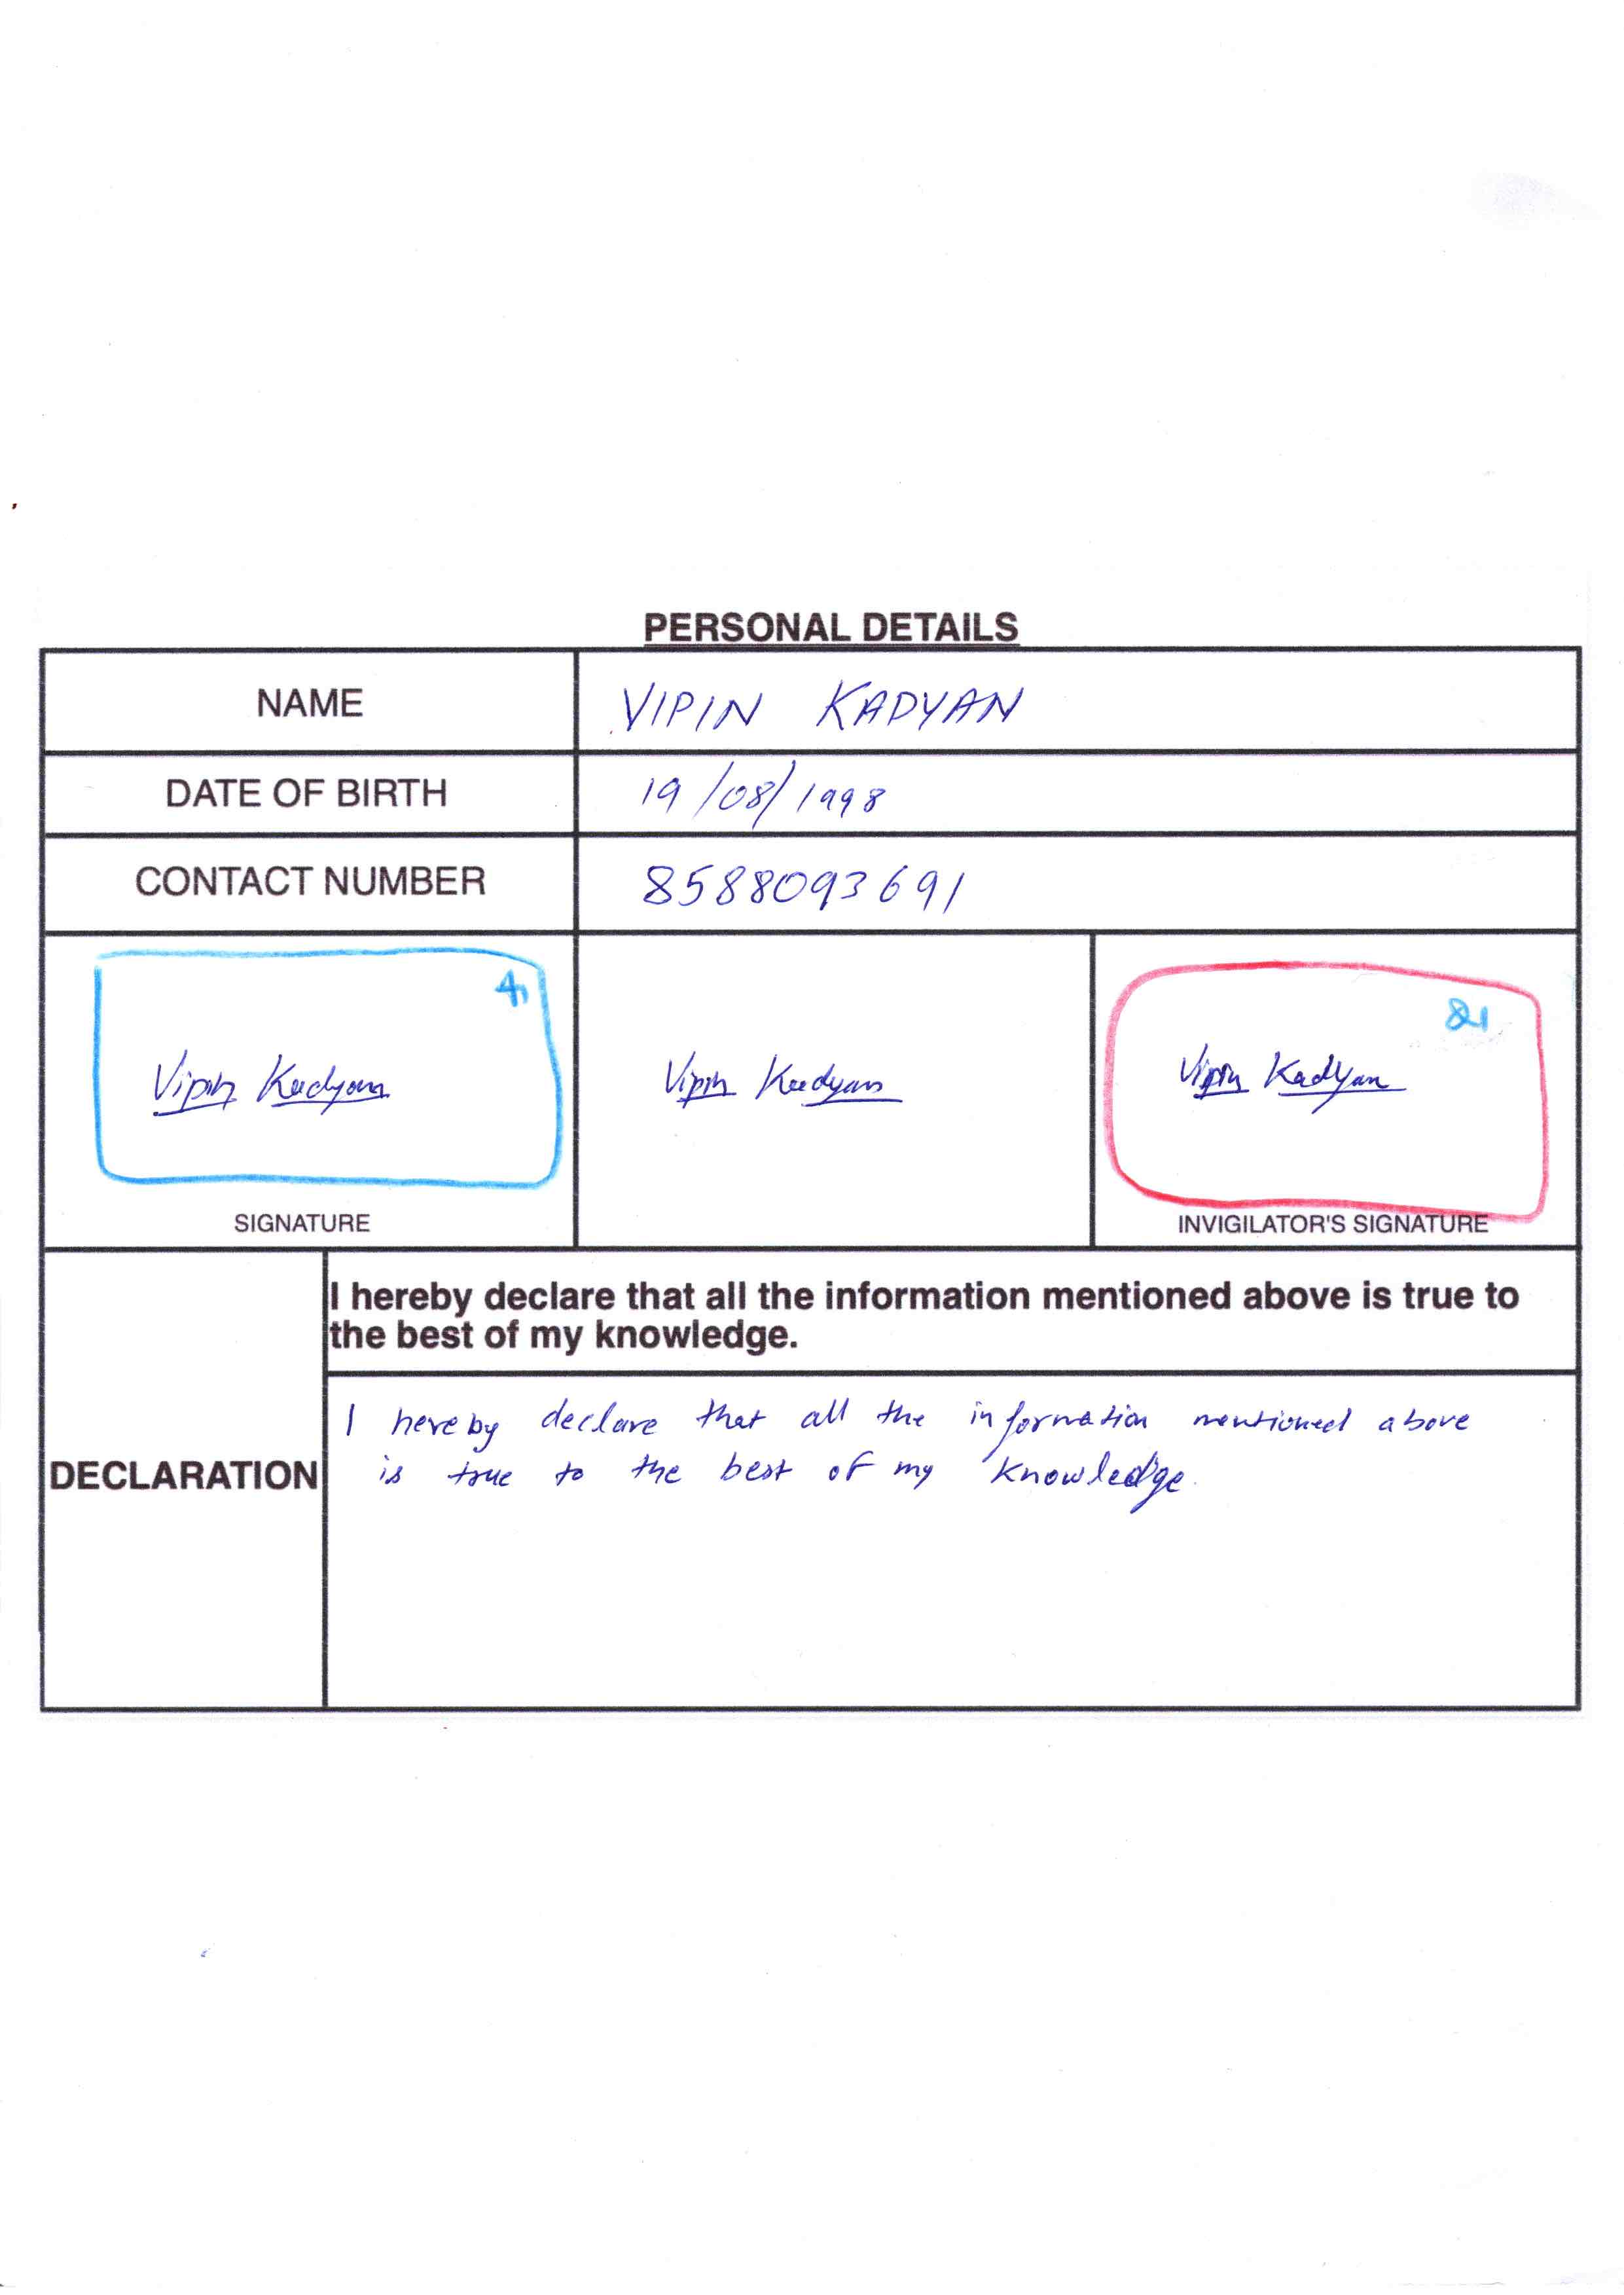 PERSONAL DETAILS
NAME
VIPIN KADYAN
DATE OF BIRTH
19/08/1998
CONTACT NUMBER
8588093691
Vipin Kadyan
Vipin Kadyan
Vipin Kadyan
SIGNATURE
INVIGILATOR'S SIGNATURE
I hereby declare that all the information mentioned above is true to
the best of my knowledge.
DECLARATION
I hereby declare that all the information mentioned above
is true to the best of my knowledge.